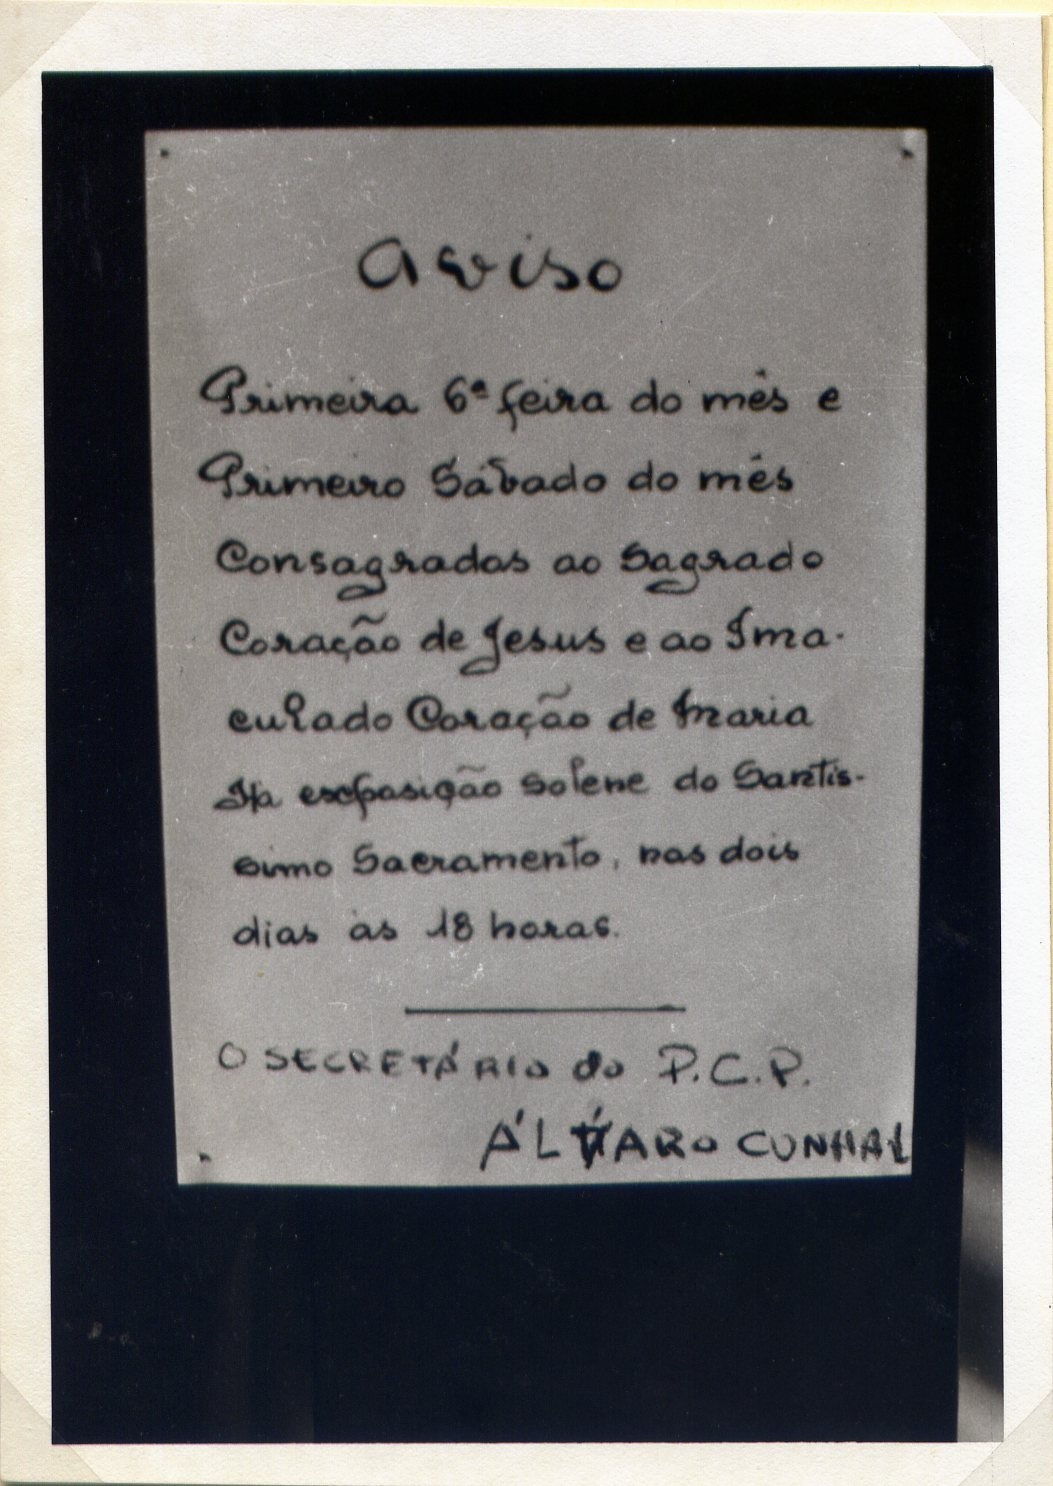 Aviso
Primeira 6ª feira do mês e
Primeiro Sábado do mês
Consagrados ao Sagrado
Coração de Jesus e ao Ima-
culado Coração de Maria
Há exposição solene do Santís-
simo Sacramento, nas dois
dias às 18 horas.
O SECRETÁRIO do P.C.P.
ÁLVARO CUNHAL